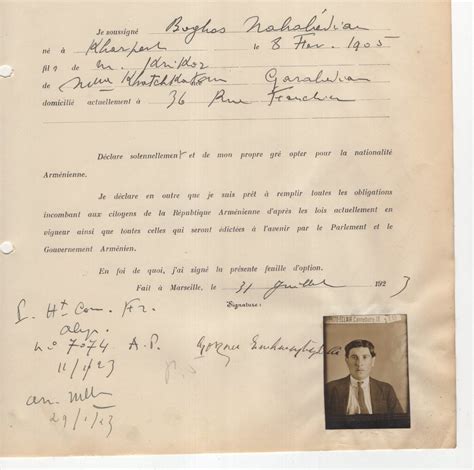 Je soussigné Boghos Nahabédian
né à Kharpert le 8 Fev. 1905
fil s de M. Krikor
de Mme Khatchkatoun Garabédian
domicilié actuellement à 36 Rue
Déclare solennellement et de mon propre gré opter pour la nationalité
Arménienne.
Je déclare en outre que je suis prêt à remplir toutes les obligations
incombant aux citoyens de la République Arménienne d'après les lois actuellement en
vigueur ainsi que toutes celles qui seront édictées à l'avenir par le Parlement et le
Gouvernement Arménien.
En foi de quoi, j'ai signé la présente feuille d'option.
Fait à Marseille, le 31 Juillet 1923
Signature:
Ht Com. Fr.
No 7074 A.P.
11/1/23
29/1/23